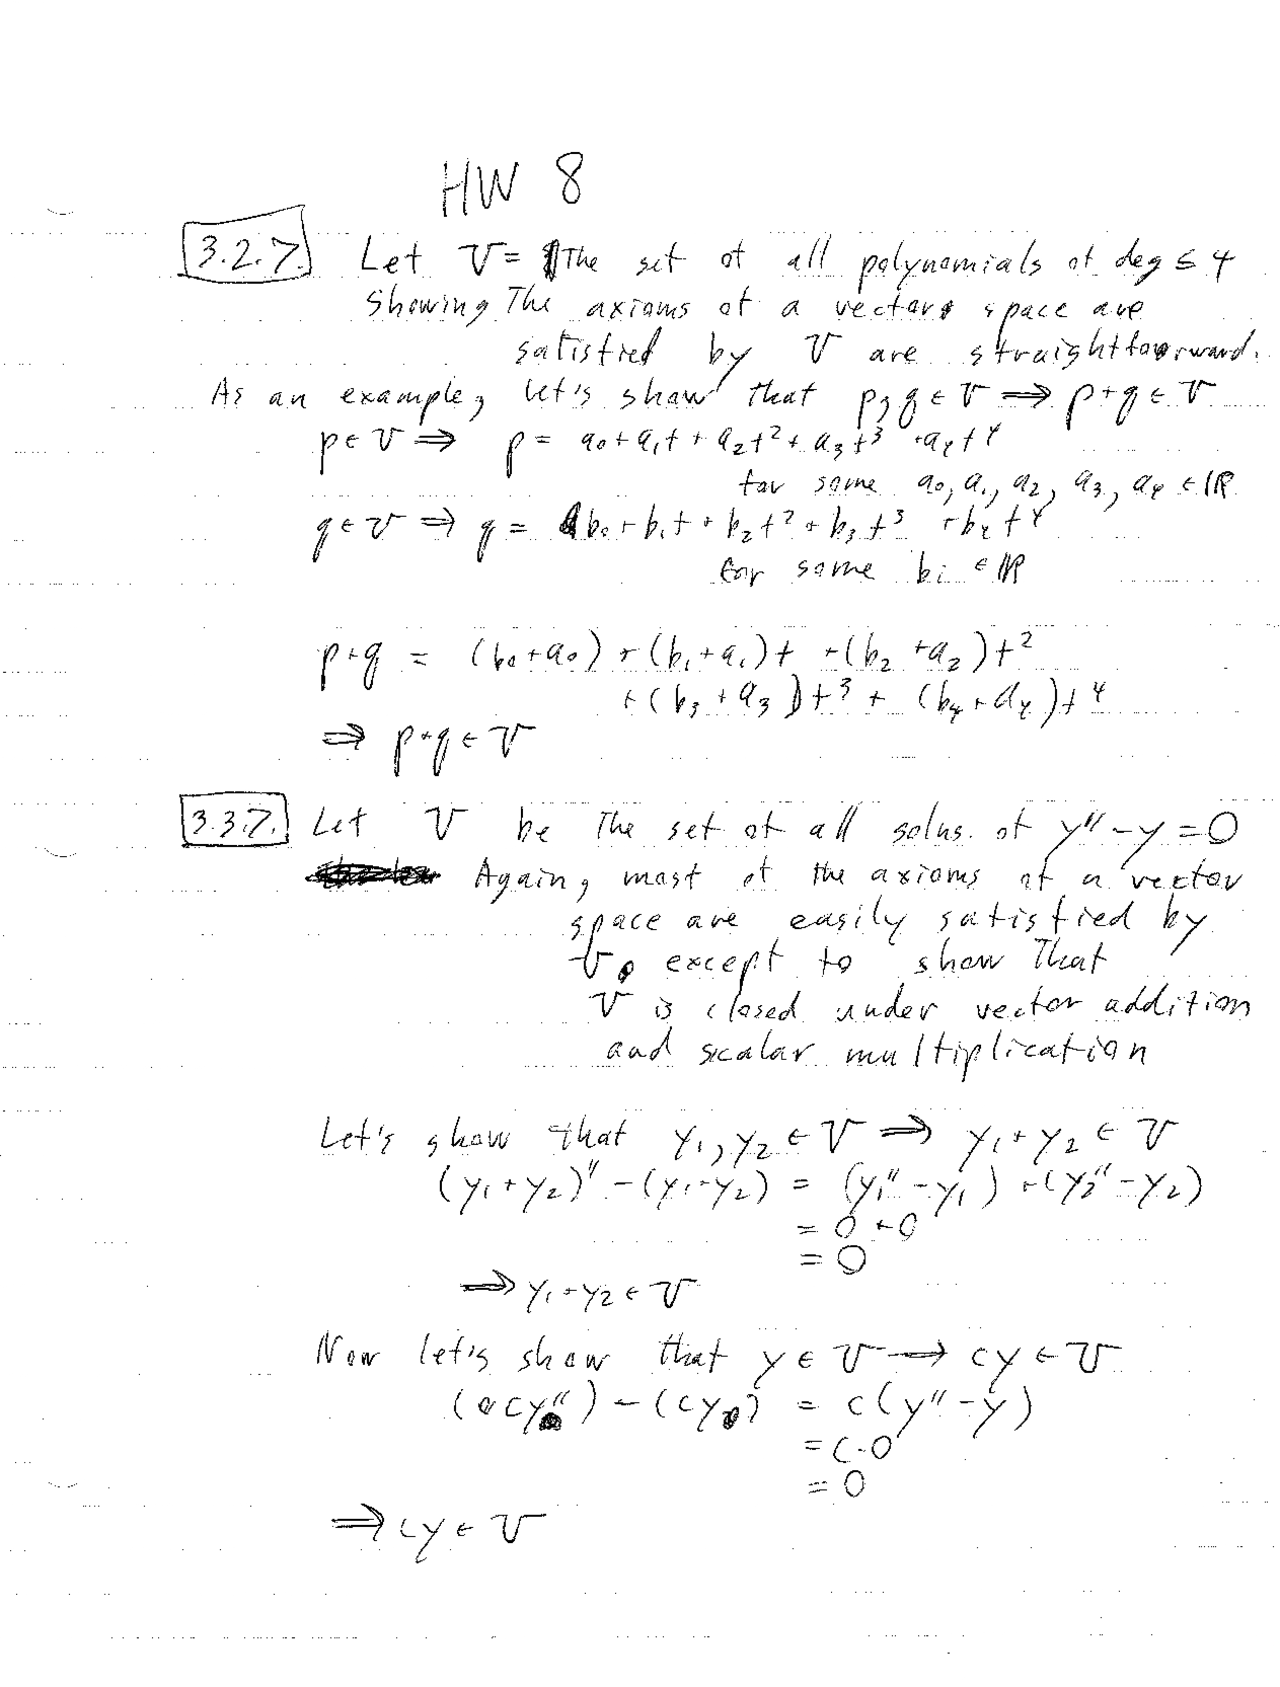 HW 8
3.2.7. Let V = The set of all polynomials of deg ≤ 4
Showing The axioms of a vector space are
satisfied by V are straightforward.
As an example, let's show that p, q ∈ V ⇒ p+q ∈ V
p ∈ V ⇒ p = a₀ + a₁t + a₂t² + a₃t³ + a₄t⁴
for some a₀, a₁, a₂, a₃, a₄ ∈ ℝ
q ∈ V ⇒ q = b₀ + b₁t + b₂t² + b₃t³ + b₄t⁴
for some bᵢ ∈ ℝ
p+q = (b₀+a₀) + (b₁+a₁)t + (b₂+a₂)t²
+ (b₃+a₃)t³ + (b₄+a₄)t⁴
⇒ p+q ∈ V
3.3.7. Let V be The set of all solns. of y'' - y = 0
Again, most of the axioms of a vector
space are easily satisfied by
V, except to show That
V is closed under vector addition
and scalar multiplication
Let's show that y₁, y₂ ∈ V ⇒ y₁+y₂ ∈ V
(y₁+y₂)'' - (y₁-y₂) = (y₁'' - y₁) + (y₂'' - y₂)
= 0 + 0
= 0
⇒ y₁+y₂ ∈ V
Now let's show that y ∈ V → cy ∈ V
(cy'') - (cy) = c(y'' - y)
= c·0
= 0
⇒ cy ∈ V